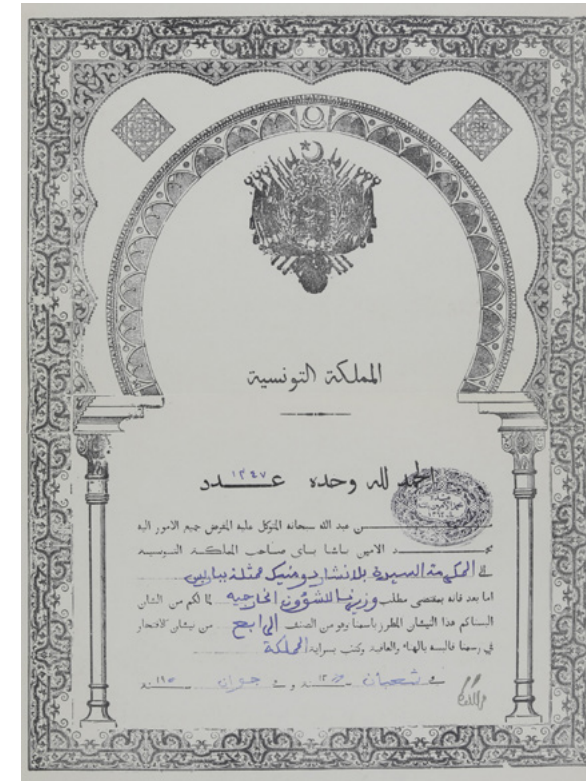 المملكة التونسية
الحمد لله وحده عـــدد ١٣٤٧
من عبد الله سبحانه المتوكل عليه المفوض جميع الامور اليه
محمد الامين باشا باي صاحب المملكة التونسية
الى السيدة بلانشار دومنيك ممثلة بباريس
اما بعد فانه بمقتضى مطلب وزيرنا للشؤون الخارجيه لما لكم من الشان
البسناكم هذا النيشان المطرز باسمنا وهو من الصنف الرابع من نيشان الافتخار
في رسمنا فالبسه بالهناء والعافية وكتب بسراية المملكة
في شعبان سنة وفي جوان سنة